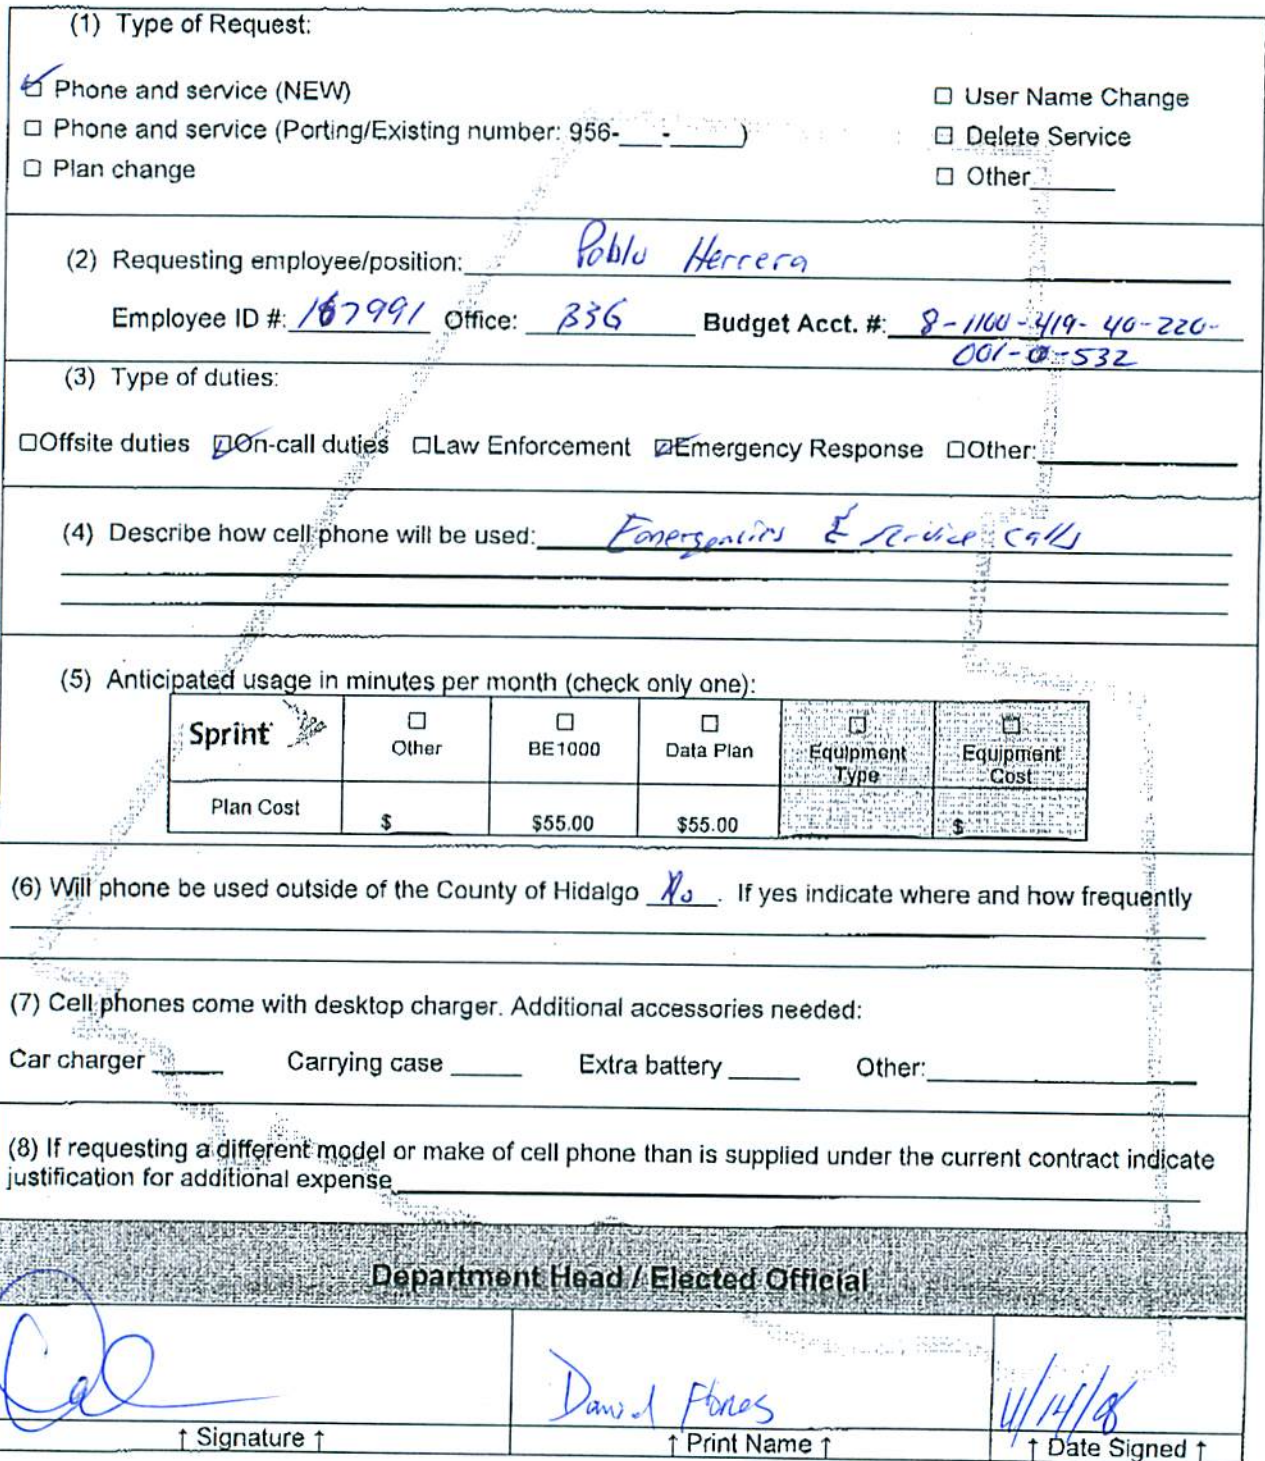 (1) Type of Request:
Phone and service (NEW)
☐ User Name Change
☐ Phone and service (Porting/Existing number: 956-___-_____)
☐ Delete Service
☐ Plan change
☐ Other______
(2) Requesting employee/position: Pablo Herrera
Employee ID #: 167991 Office: 336 Budget Acct. #: 8-1100-419-40-220-
001-0-532
(3) Type of duties:
☐Offsite duties ☑On-call duties ☐Law Enforcement ☑Emergency Response ☐Other:
(4) Describe how cell phone will be used: Emergencies & service calls
(5) Anticipated usage in minutes per month (check only one):
Sprint ☐ Other ☐ BE1000 ☐ Data Plan ☐ Equipment Type ☐ Equipment Cost
Plan Cost $____ $55.00 $55.00 $
(6) Will phone be used outside of the County of Hidalgo No. If yes indicate where and how frequently
(7) Cell phones come with desktop charger. Additional accessories needed:
Car charger _____ Carrying case _____ Extra battery _____ Other:
(8) If requesting a different model or make of cell phone than is supplied under the current contract indicate
justification for additional expense
Department Head / Elected Official
David Flores
↑ Signature ↑ ↑ Print Name ↑ ↑ Date Signed ↑